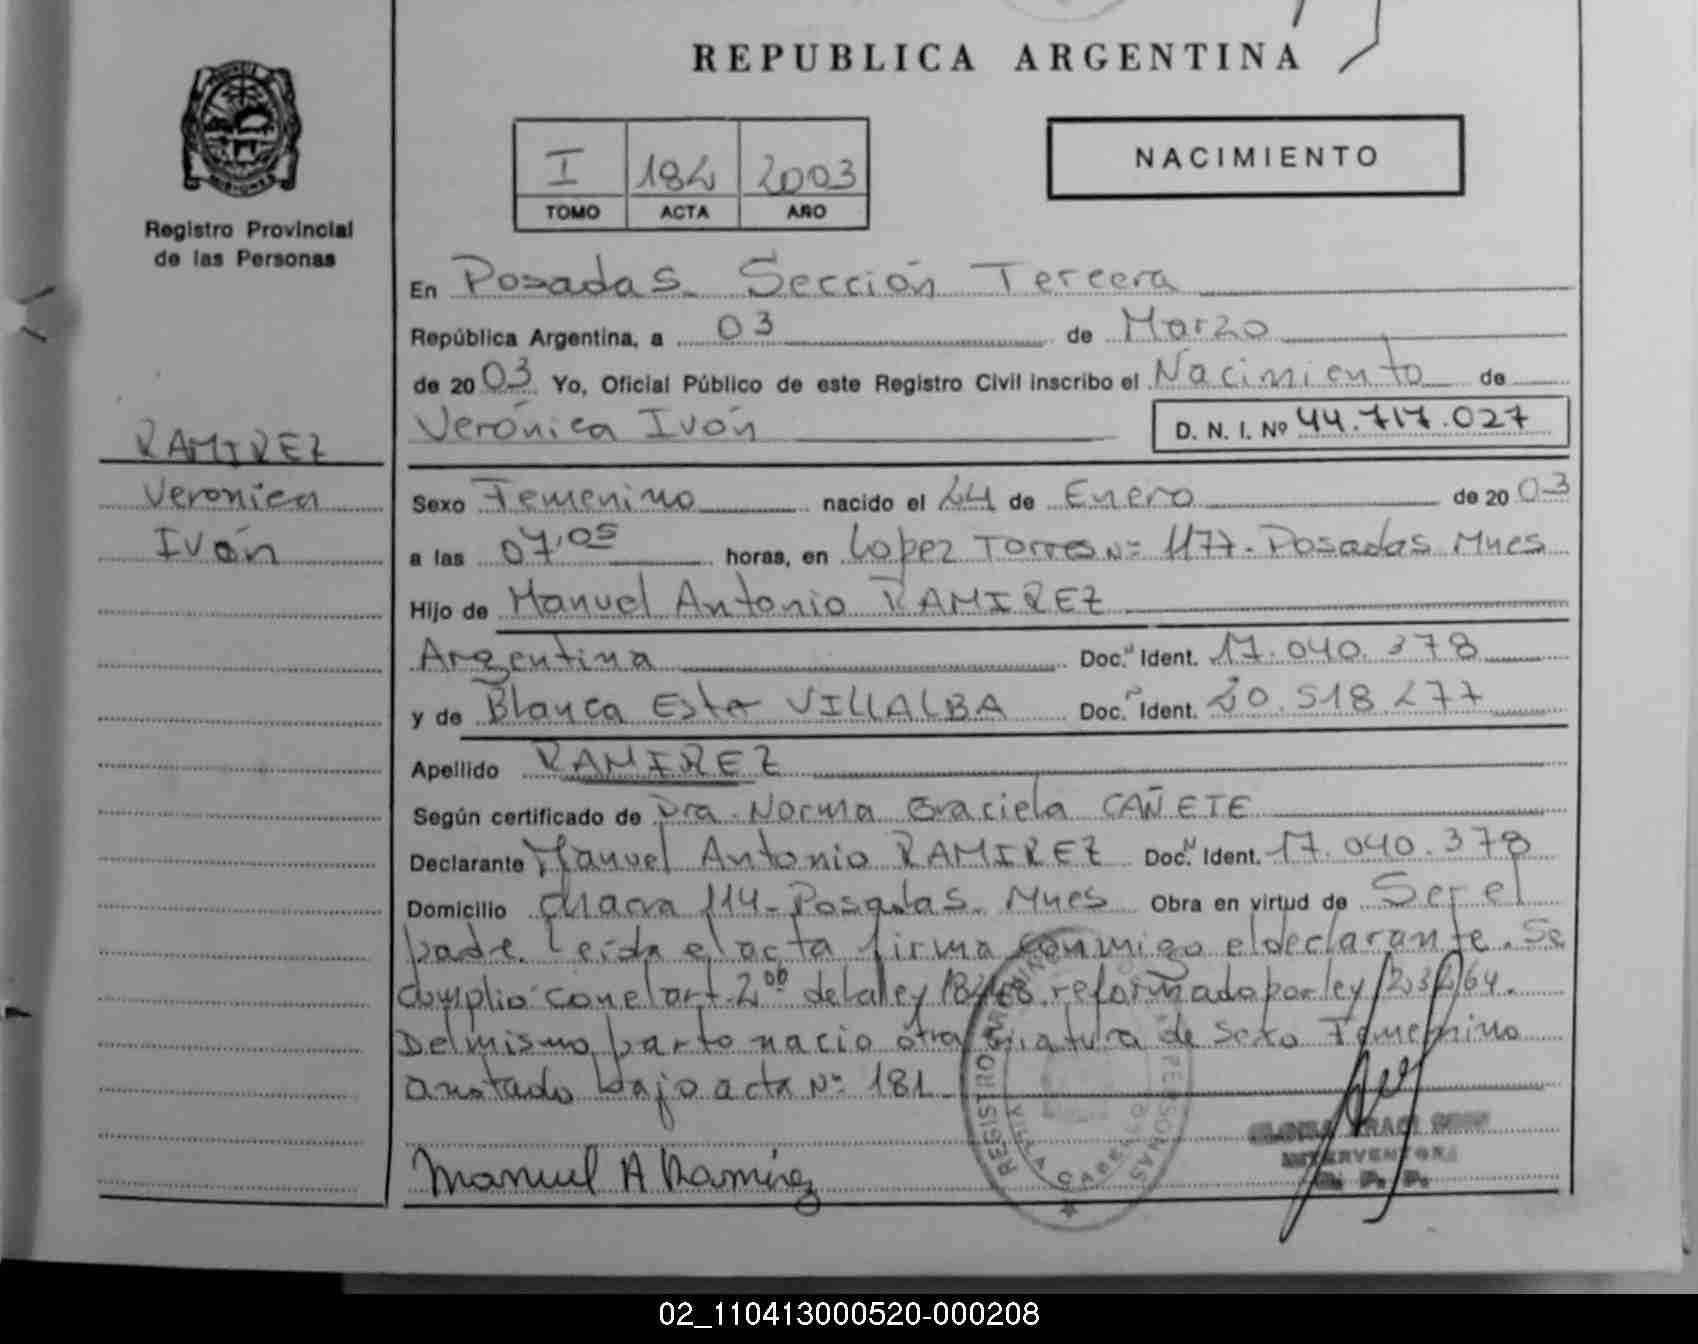 REPUBLICA ARGENTINA
PROVINCIA DE
MISIONES
Registro Provincial
de las Personas
I 182 2003
TOMO ACTA AÑO
NACIMIENTO
En Posadas. Sección Tercera
República Argentina, a 03 de Marzo
de 2003 Yo, Oficial Público de este Registro Civil inscribo el Nacimiento de
Verónica Ivón D. N. I. Nº 44.717.027
RAMIREZ
Veronica
Ivón
Sexo Femenino nacido el 24 de Enero de 2003
a las 07,05 horas, en Lopez Torres Nº 1177. Posadas Mnes
Hijo de Manuel Antonio RAMIREZ
Argentina Doc. Ident. 17.040.378
y de Blanca Ester VILLALBA Doc. Ident. 20.518.277
Apellido RAMIREZ
Según certificado de Dra. Norma Graciela CAÑETE
Declarante Manuel Antonio RAMIREZ Doc. Ident. 17.040.378
Domicilio Chacra 114-Posadas. Mnes Obra en virtud de Ser el
padre. Leída el acta firma conmigo el declarante. Se
cumplio con el art. 2º de la ley reformado por ley
Del mismo parto nacio otra criatura de sexo Femenino
anotado bajo acta Nº 181.
REGISTRO PERSONAS
Manuel A Ramírez
INTERVENTORA
R. P. P.
02_110413000520-000208